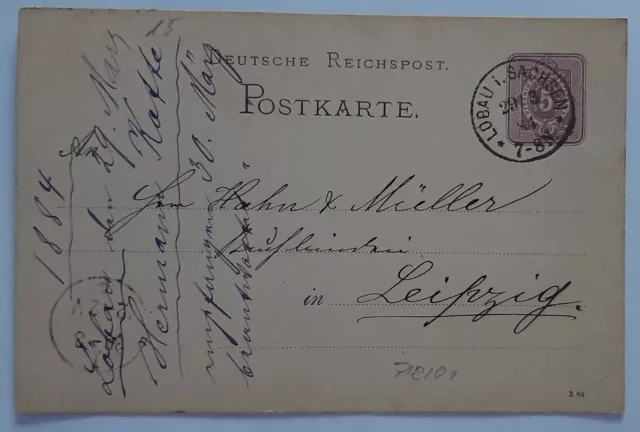 DEUTSCHE REICHSPOST.
POSTKARTE.
LÖBAU i. SACHSEN
29 3
7-8N
5
An
Hahn & Müller
in Leipzig.
15
1884
Löbau den 29. März
Hermann Kotte
empfangen 30. März
beantwortet "
71210
3 84